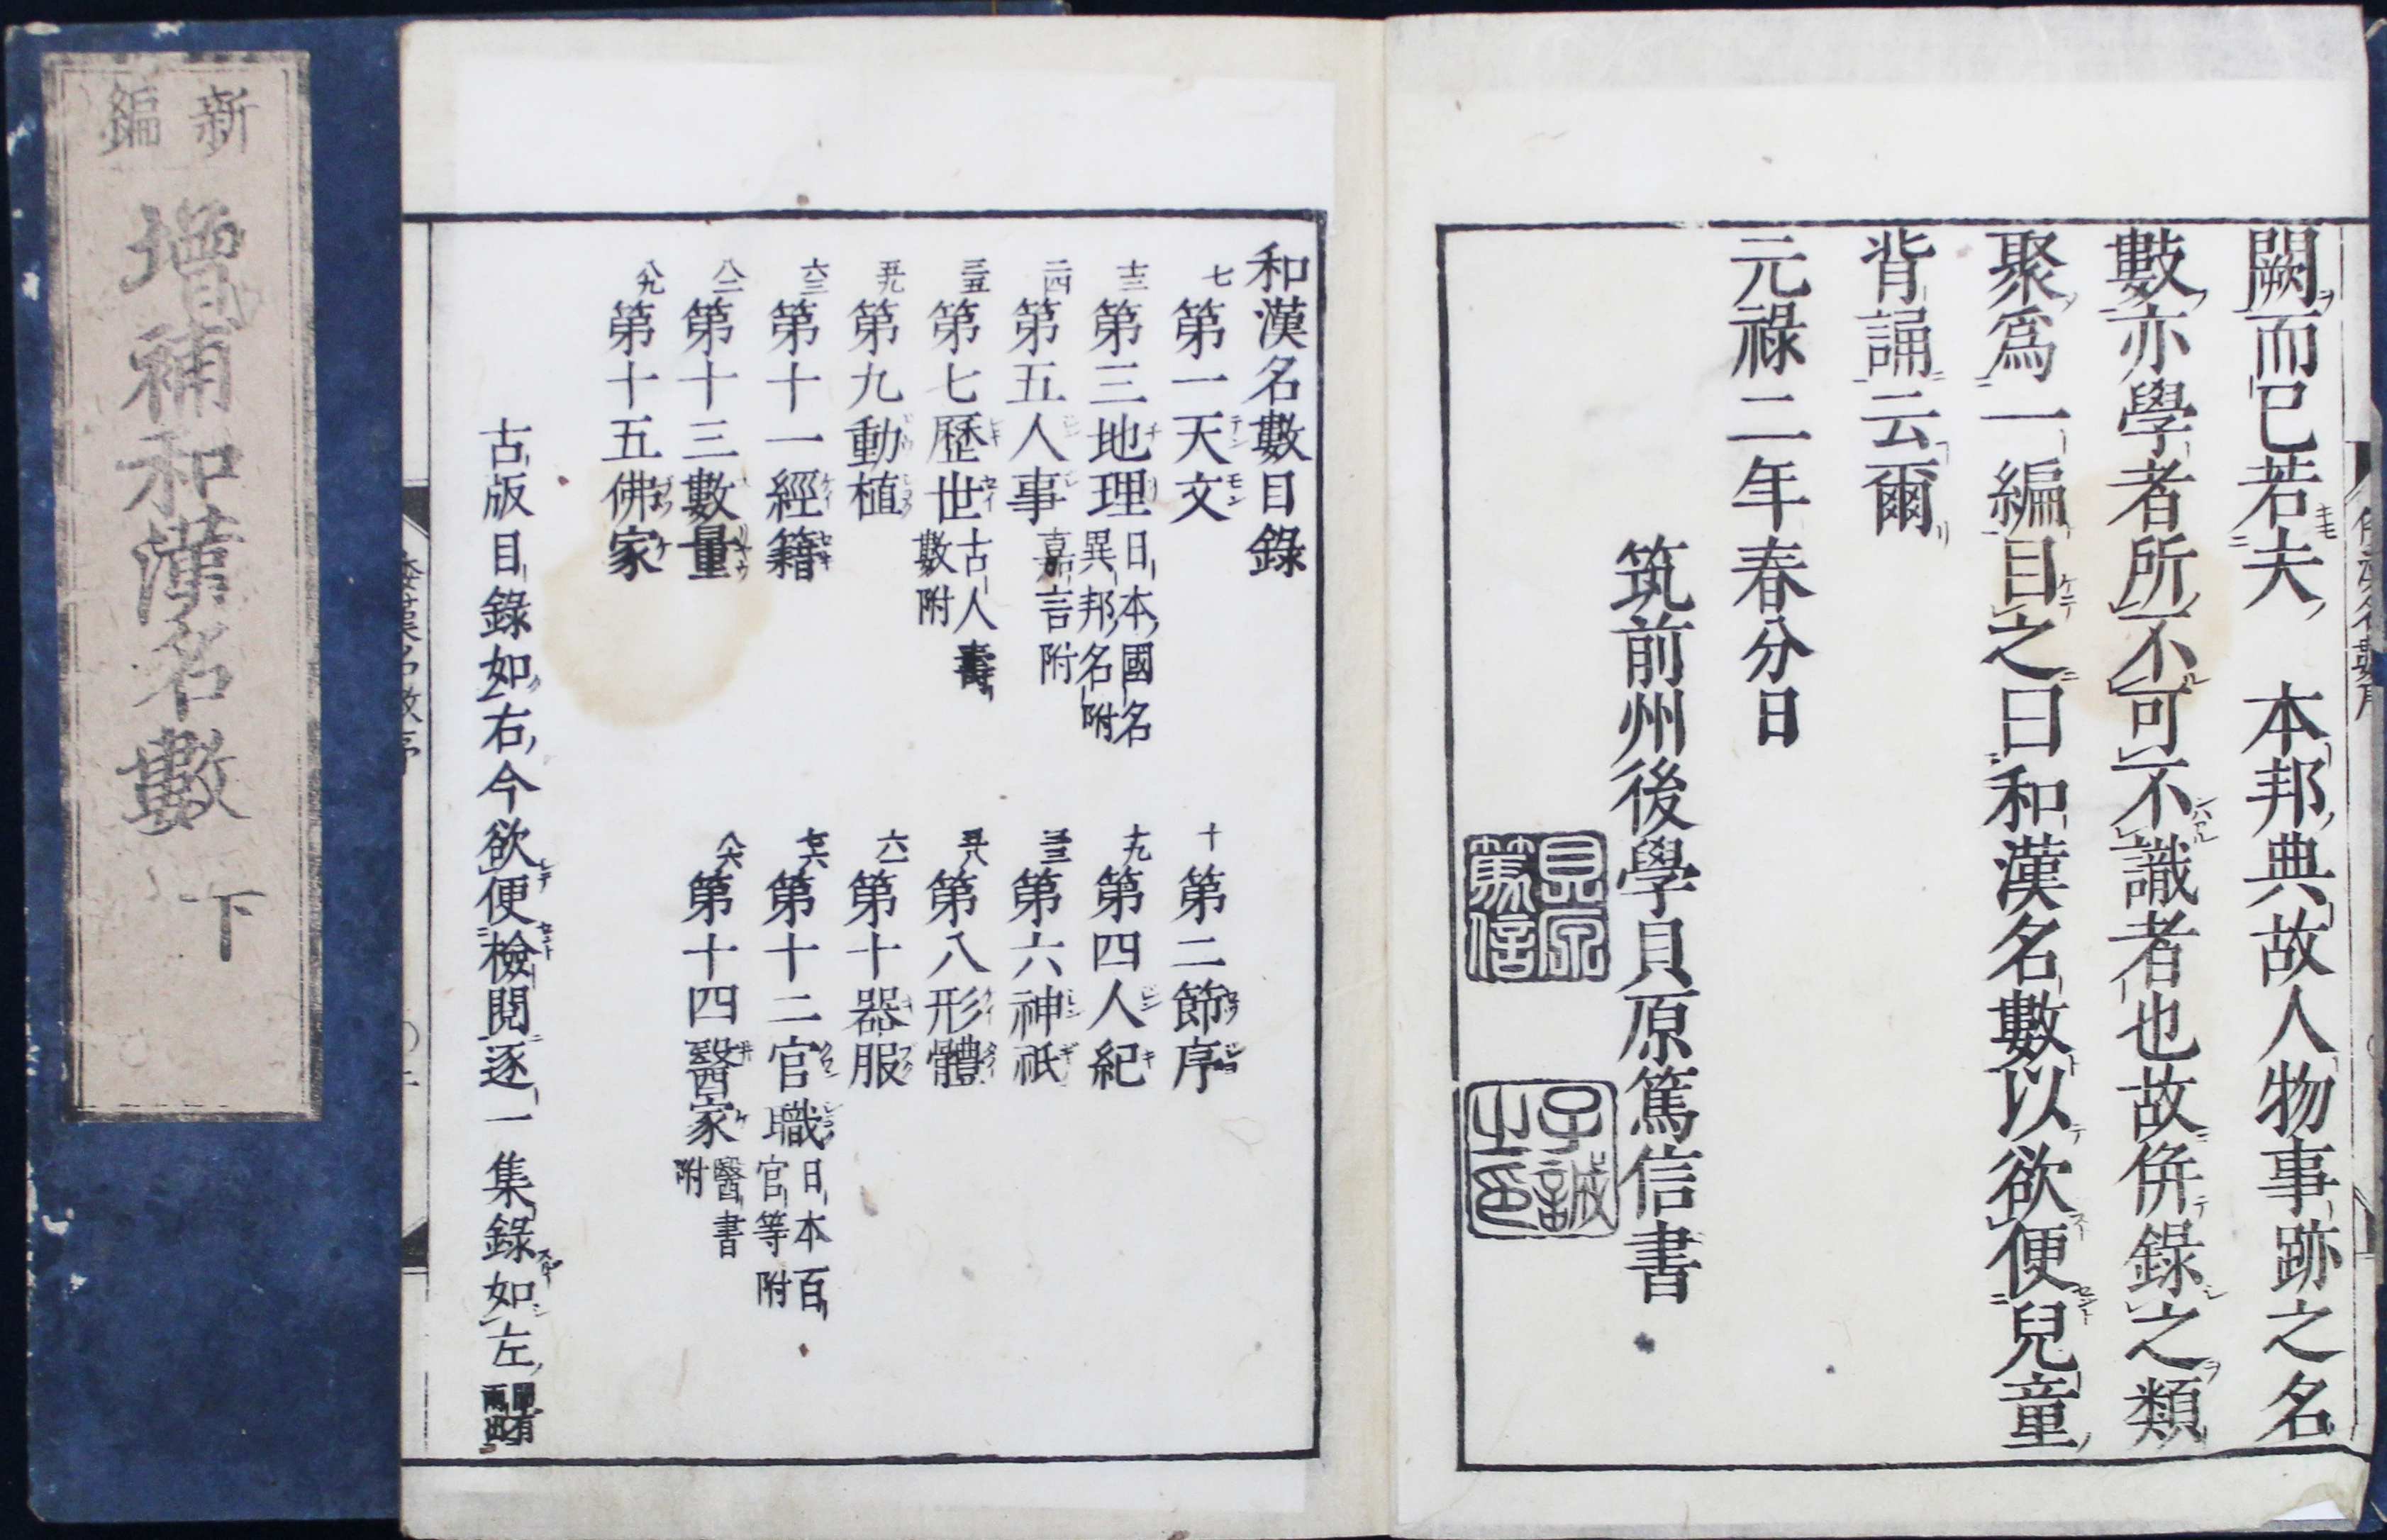 闕而已若夫　本邦典故人物事跡之名
數亦學者所不可不識者也故併錄之類
聚爲一編目之曰和漢名數以欲便兒童
背誦云爾
元祿二年春分日
筑前州後學貝原篤信書
貝原篤信
子誠之印
和漢名數目錄
七 第一天文 十 第二節序
十三 第三地理 日本國名異邦名附 十九 第四人紀
二四 第五人事 嘉言附 三三 第六神祇
三五 第七歷世 古人壽數附 五八 第八形體
五九 第九動植 六一 第十器服
六三 第十一經籍 七六 第十二官職 日本百官等附
八二 第十三數量 八六 第十四醫家 醫書附
八九 第十五佛家
古版目錄如右今欲便檢閱逐一集錄如左
新編
增補和漢名數 下